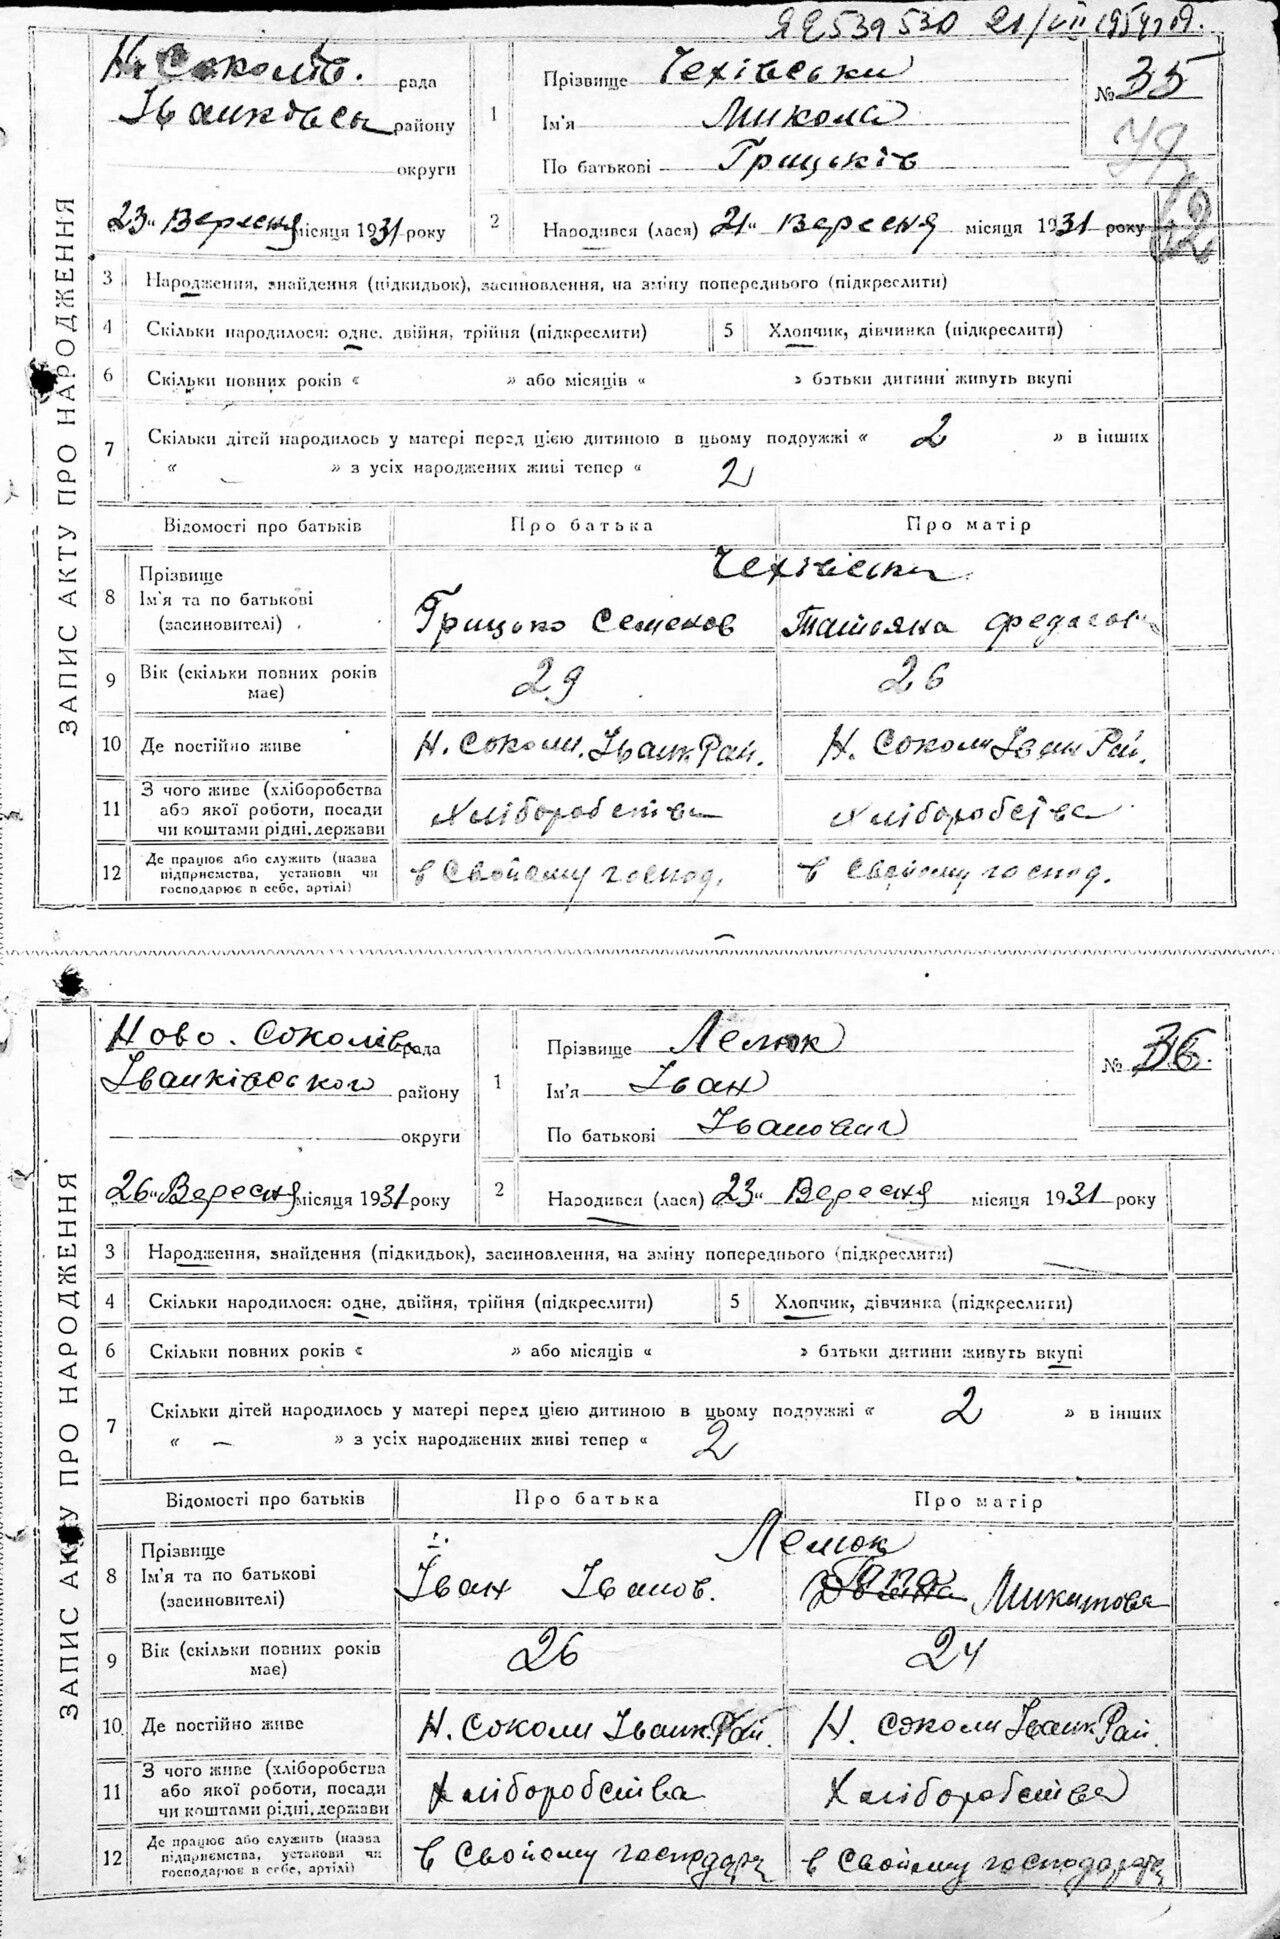 ЯЄ 539530 21/VII 1954 р.
Н. Соколів. рада
Іванковськ району
округи
„23“ Вересня місяця 1931 року
1 Прізвище Чехівський
Ім'я Микола
По батькові Грицьків
№ 35
2 Народився (лася) „21“ Вересня місяця 1931 року
ЗАПИС АКТУ ПРО НАРОДЖЕННЯ
3 Народження, знайдення (підкидьок), засиновлення, на зміну попереднього (підкреслити)
4 Скільки народилося: одне, двійня, трійня (підкреслити) 5 Хлопчик, дівчинка (підкреслити)
6 Скільки повних років « » або місяців « » батьки дитини живуть вкупі
7 Скільки дітей народилось у матері перед цією дитиною в цьому подружжі « 2 » в інших
« – » з усіх народжених живі тепер « 2
Відомості про батьків Про батька Про матір
8 Прізвище
Ім'я та по батькові
(засиновителі)
Чехівськи
Грицько Семенов Татьяна Федосов
9 Вік (скільки повних років
має) 29 26
10 Де постійно живе Н. Соколи. Іванк. Рай. Н. Соколи Іван Рай.
11 З чого живе (хліборобства
або якої роботи, посади
чи коштами рідні, держави
Хліборобства Хліборобства
12 Де працює або служить (назва
підприємства, установи чи
господарює в себе, артілі)
в Свойому господ. в Свойому господ.
Ново. Соколівс рада
Іванківського району
округи
„26“ Вересня місяця 1931 року
1 Прізвище Лелюк
Ім'я Іван
По батькові Іванович
№ 36.
2 Народився (лася) „23“ Вересня місяця 1931 року
ЗАПИС АКТУ ПРО НАРОДЖЕННЯ
3 Народження, знайдення (підкидьок), засиновлення, на зміну попереднього (підкреслити)
4 Скільки народилося: одне, двійня, трійня (підкреслити) 5 Хлопчик, дівчинка (підкреслити)
6 Скільки повних років « » або місяців « » батьки дитини живуть вкупі
7 Скільки дітей народилось у матері перед цією дитиною в цьому подружжі « 2 » в інших
« – » з усіх народжених живі тепер « 2
Відомості про батьків Про батька Про матір
8 Прізвище
Ім'я та по батькові
(засиновителі)
Лелюк
Іван Іванов. Микитова
9 Вік (скільки повних років
має) 26 24
10. Де постійно живе Н. Соколи Іванк. Рай. Н. Соколи Іванк. Рай.
11 З чого живе (хліборобства
або якої роботи, посади
чи коштами рідні, держави
Хліборобства Хліборобства
12 Де працює або служить (назва
підприємства, установи чи
господарює в себе, артілі)
в Свойому господарц в Свойому господарц